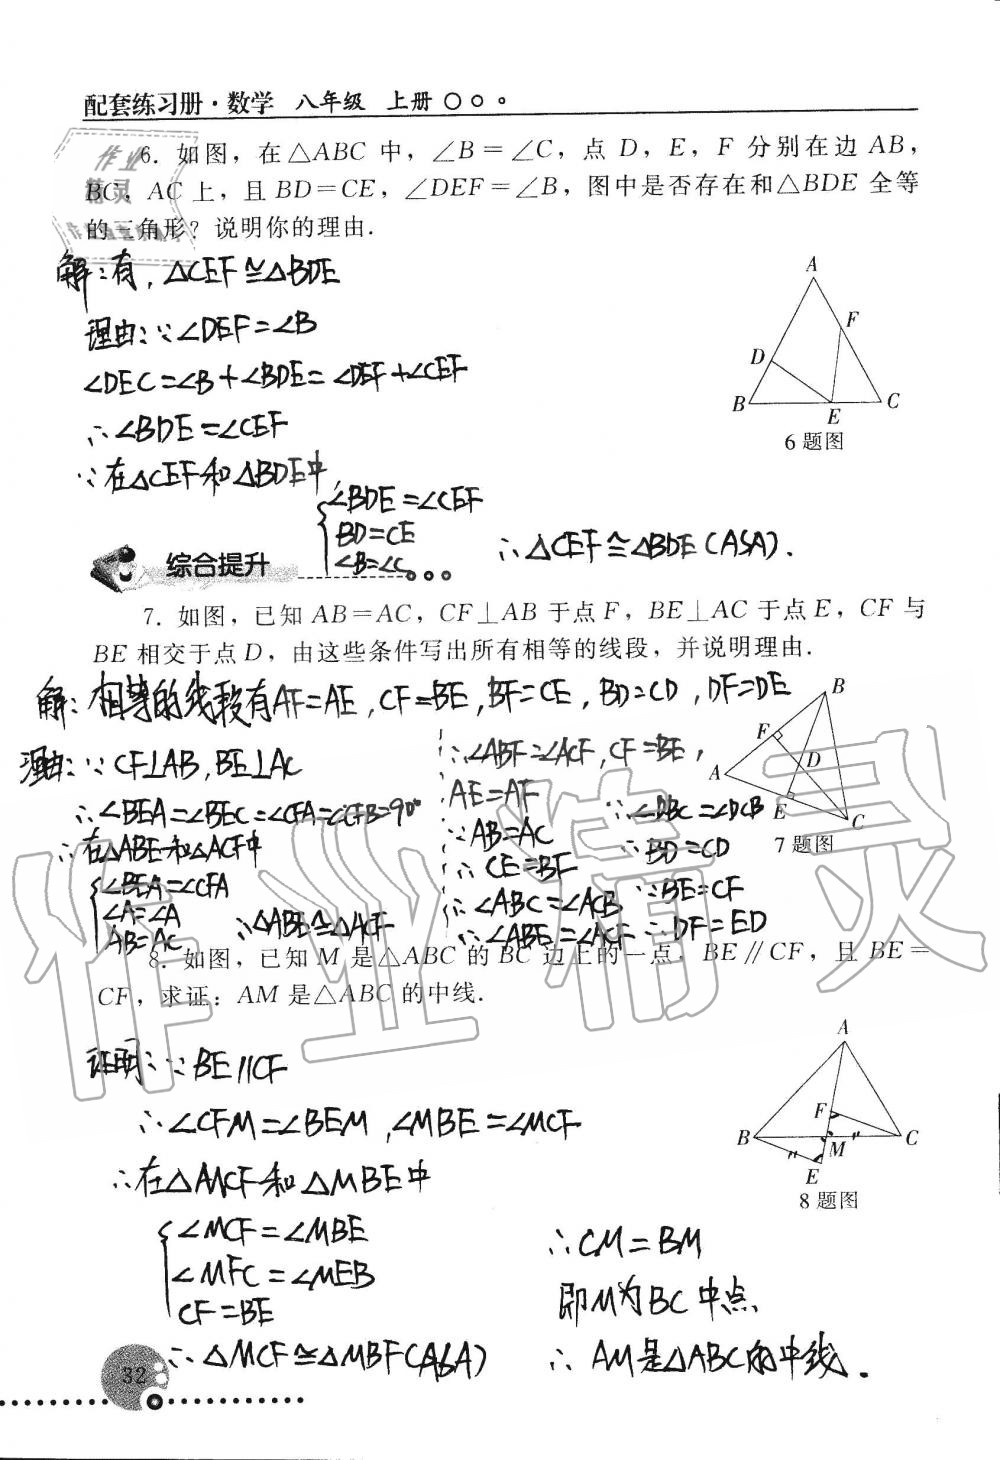 配套练习册·数学 八年级 上册
6. 如图，在△ABC 中，∠B＝∠C，点 D，E，F 分别在边 AB，
BC，AC 上，且 BD＝CE，∠DEF＝∠B，图中是否存在和△BDE 全等
的三角形？说明你的理由．
解：有，△CEF≌△BDE
理由：∵∠DEF＝∠B
∠DEC＝∠B＋∠BDE＝∠DEF＋∠CEF
∴∠BDE＝∠CEF
∵在△CEF和△BDE中，
∠BDE＝∠CEF
BD＝CE
∠B＝∠C
∴△CEF≌△BDE（ASA）．
A
F
D
B
E
C
6 题图
综合提升
7. 如图，已知 AB＝AC，CF⊥AB 于点 F，BE⊥AC 于点 E，CF 与
BE 相交于点 D，由这些条件写出所有相等的线段，并说明理由．
解：相等的线段有AF＝AE，CF＝BE，BF＝CE，BD＝CD，DF＝DE
理由：∵CF⊥AB，BE⊥AC
∴∠BEA＝∠BEC＝∠CFA＝∠CFB＝90°
∴在△ABE和△ACF中
∠BEA＝∠CFA
∠A＝∠A
AB＝AC
∴△ABE≌△ACF
∴∠ABF＝∠ACF，CF＝BE，
AE＝AF
∵AB＝AC
∴CE＝BF
∴∠ABC＝∠ACB
∴∠ABE＝∠ACF
∴∠DBC＝∠DCB
∴BD＝CD
∵BE＝CF
∴DF＝ED
B
F
D
A
E
C
7 题图
8. 如图，已知 M 是△ABC 的 BC 边上的一点，BE∥CF，且 BE＝
CF，求证：AM 是△ABC 的中线．
证明：∵BE∥CF
∴∠CFM＝∠BEM，∠MBE＝∠MCF
∴在△MCF和△MBE中
∠MCF＝∠MBE
∠MFC＝∠MEB
CF＝BE
∴△MCF≌△MBF（ASA）
∴CM＝BM
即M为BC中点
∴AM是△ABC的中线．
A
F
B
M
C
E
8 题图
32
作业精灵
作业精灵